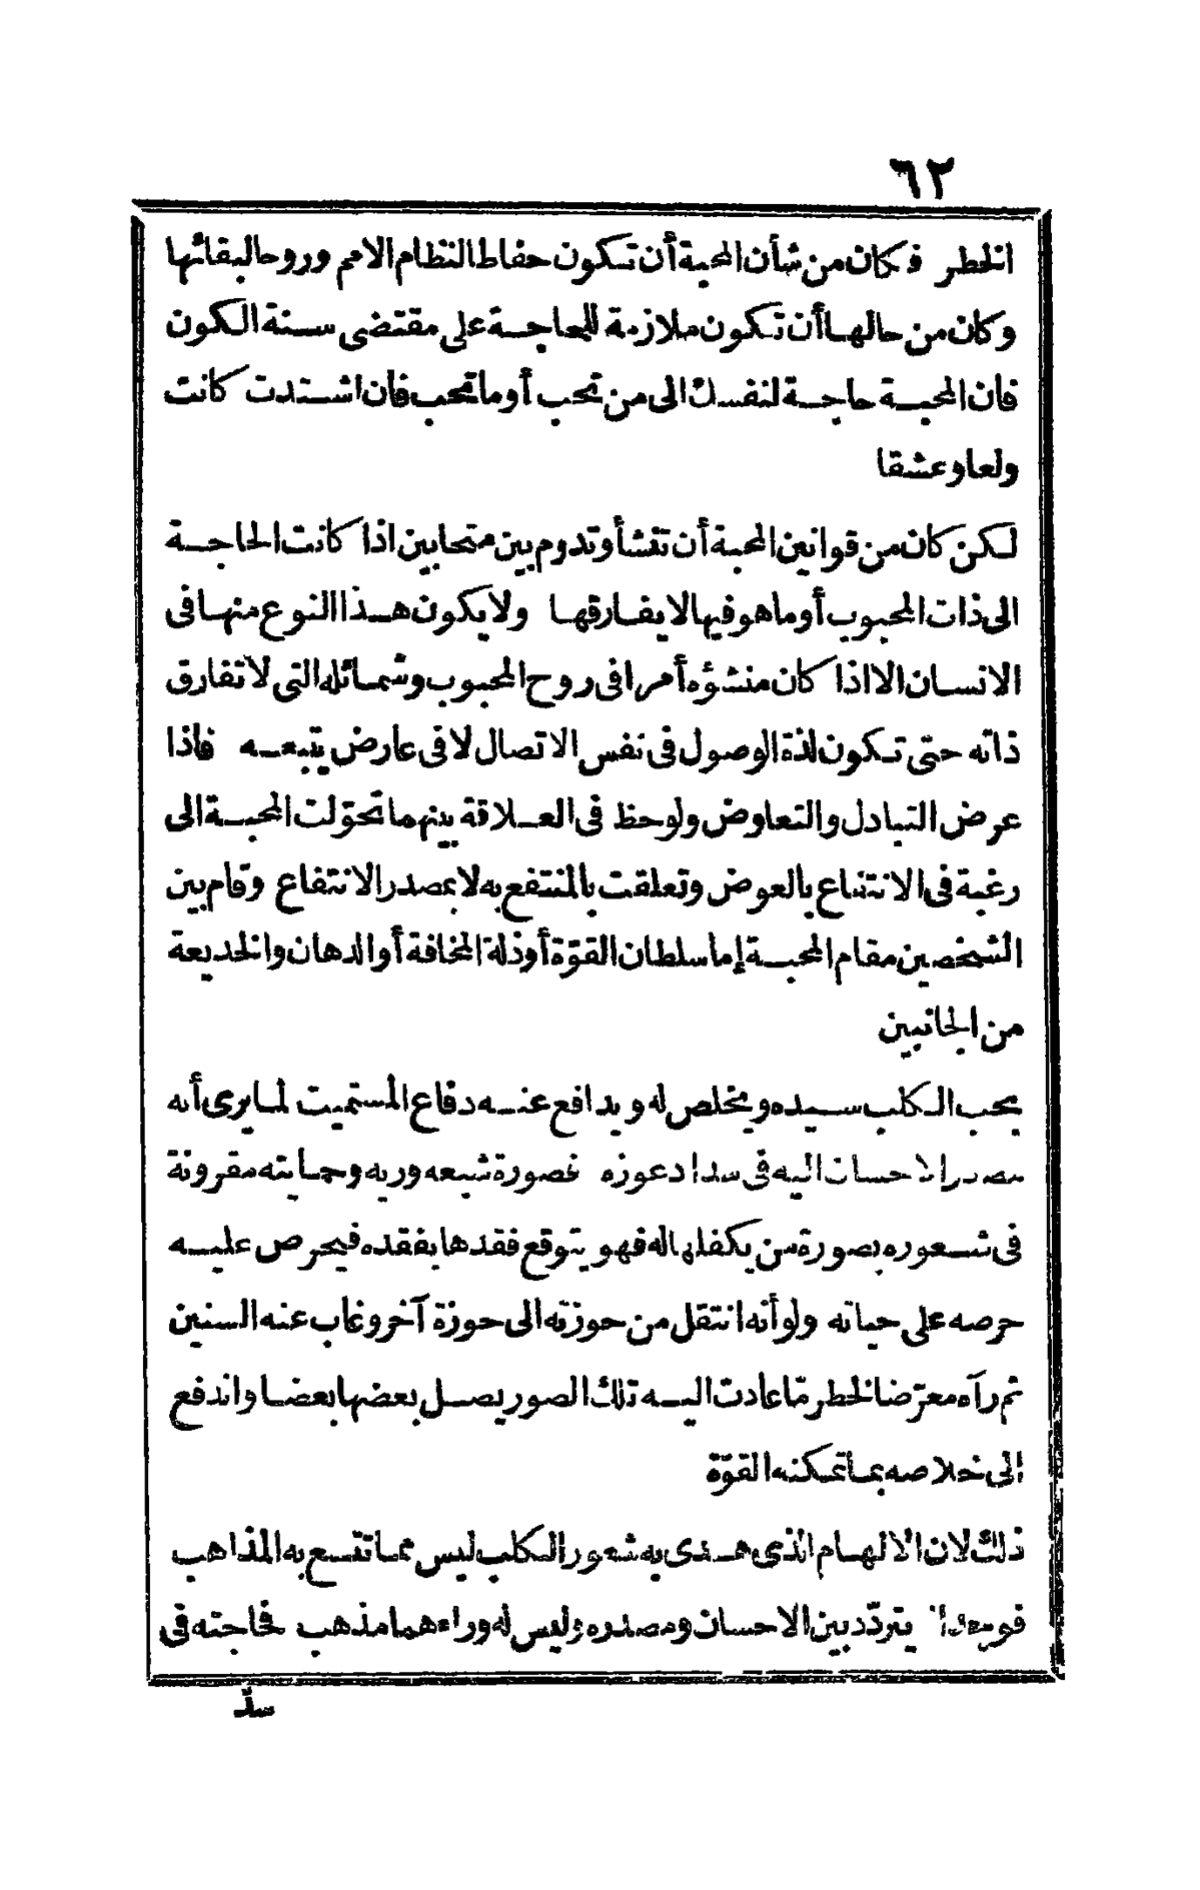 ٦٢
الخطر فكان من شأن المحبة أن تكون حفاظا لنظام الامم وروحا لبقائها
وكان من حالها أن تكون ملازمة للحاجة على مقتضى سنة الكون
فان المحبة حاجة لنفسك الى من تحب أو ما تحب فان اشتدت كانت
ولعا وعشقا
لكن كان من قوانين المحبة أن تنشأ وتدوم بين متحابين اذا كانت الحاجة
الى ذات المحبوب أو ما هو فيها لا يفارقها ولا يكون هذا النوع منها فى
الانسان الا اذا كان منشؤه أمرا فى روح المحبوب وشمائله التى لا تفارق
ذاته حتى تكون لذة الوصول فى نفس الاتصال لا فى عارض يتبعه فاذا
عرض التبادل والتعاوض ولوحظ فى العلاقة بينهما تحوّلت المحبة الى
رغبة فى الانتفاع بالعوض وتعلقت بالمنتفع به لا بمصدر الانتفاع وقام بين
الشخصين مقام المحبة إما سلطان القوّة أو ذلة المخافة أو الدهان والخديعة
من الجانبين
يحب الكلب سيده ويخلص له ويدافع عنه دفاع المستميت لما يرى أنه
مصدر الاحسان اليه فى سداد عوزه فصورة شبعه وريه وحمايته مقرونة
فى شعوره بصورة من يكفلها له فهو يتوقع فقدها بفقده فيحرص عليه
حرصه على حياته ولو أنه انتقل من حوزته الى حوزة آخر وغاب عنه السنين
ثم رآه معرّضا لخطر مّا عادت اليه تلك الصور يصل بعضها بعضا واندفع
الى خلاصه بما تمكنه القوّة
ذلك لان الالهام الذى هدى به شعور الكلب ليس مما تتسع به المذاهب
فوجدانه يتردّد بين الاحسان ومصدره وليس له وراءهما مذهب فحاجته فى
سدّ